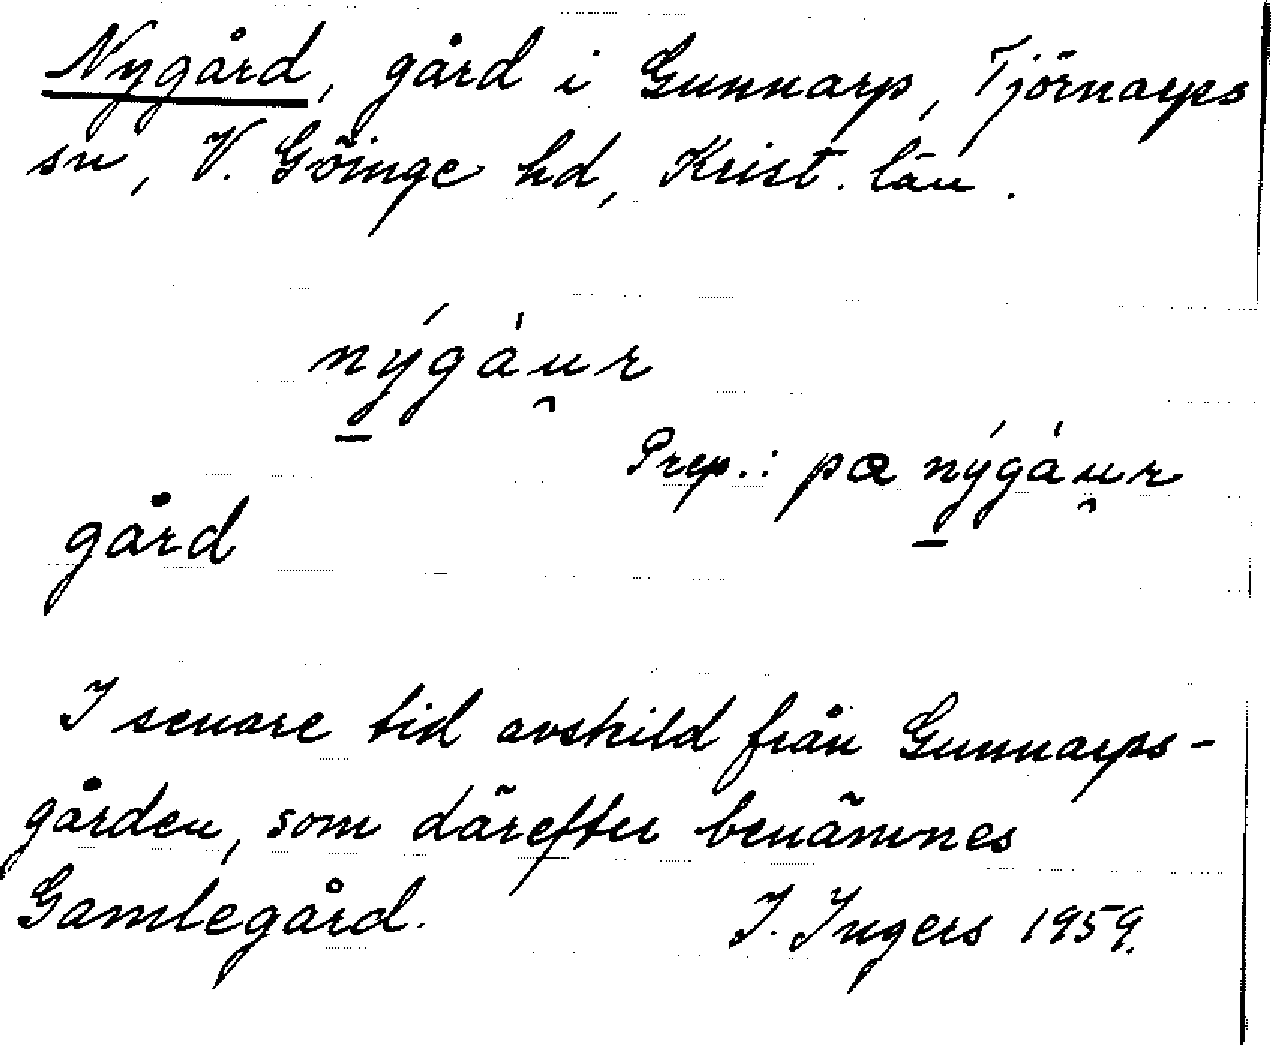 Nygård, gård i Gunnarp, Tjörnarps
sn, V. Göinge hd, Krist. län.
nýgáu̯r
Prep.: pa nýgáu̯r
gård
I senare tid avskild från Gunnarps-
gården, som därefter benämnes
Gamlegård.
I. Ingers 1959.